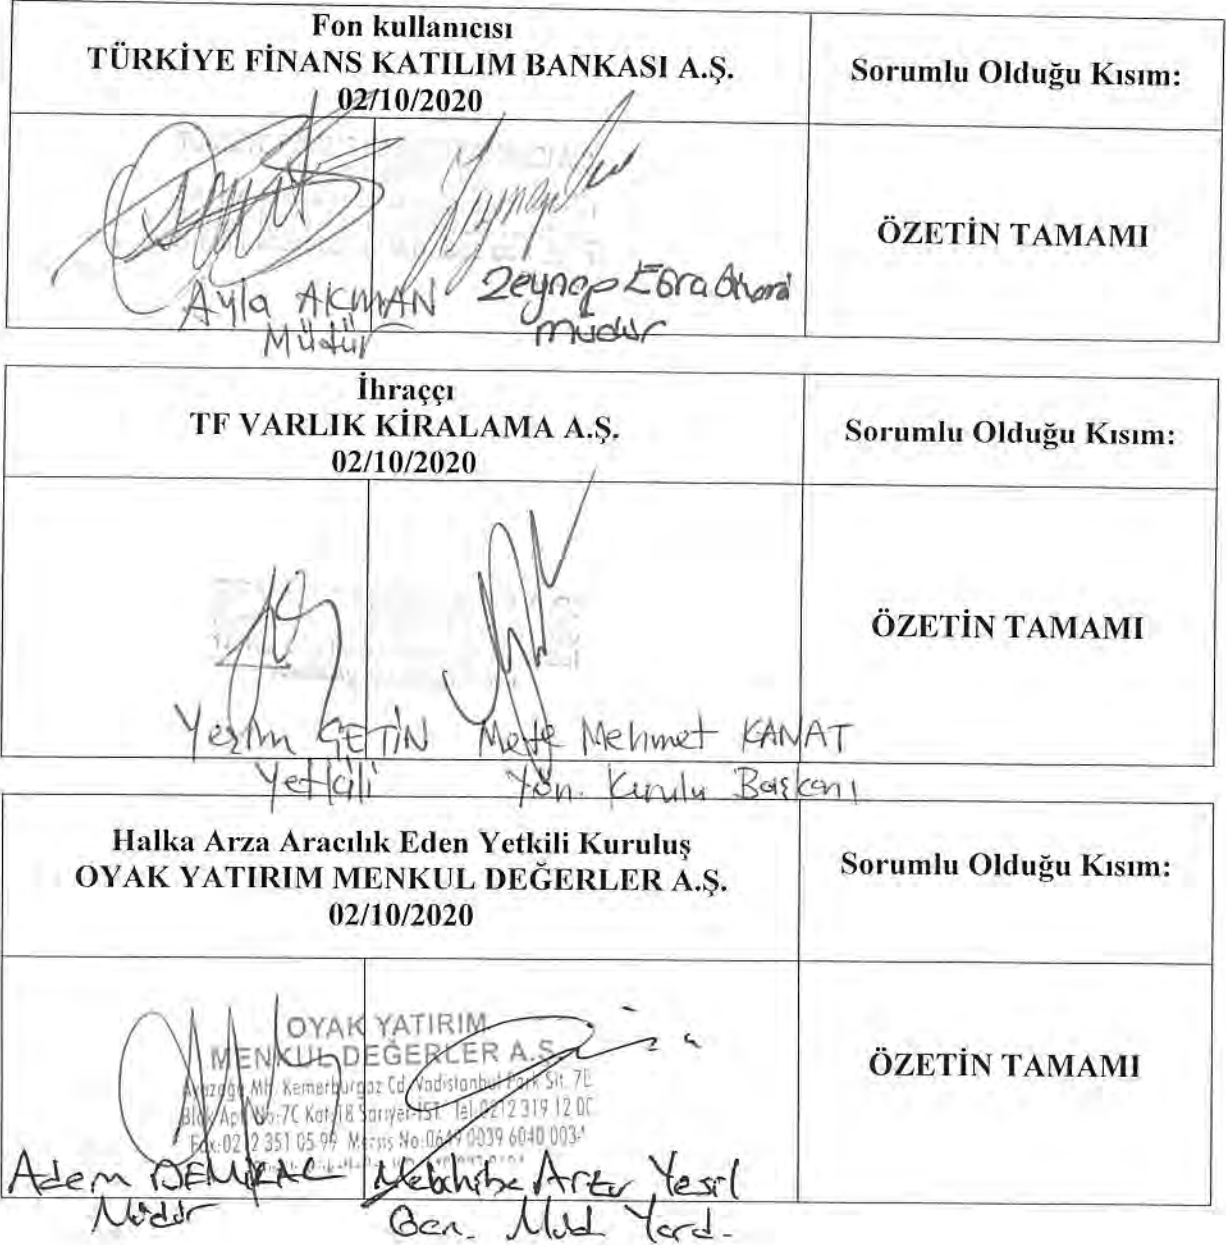 Fon kullanıcısı
TÜRKİYE FİNANS KATILIM BANKASI A.Ş.
02/10/2020
Sorumlu Olduğu Kısım:
ÖZETİN TAMAMI
Ayla AKMAN
Müdür
Zeynep Esra
Müdür
İhraççı
TF VARLIK KİRALAMA A.Ş.
02/10/2020
Sorumlu Olduğu Kısım:
ÖZETİN TAMAMI
ÇETİN
Yetkili
Mete Mehmet KANAT
Yön. Kurulu Başkanı
Halka Arza Aracılık Eden Yetkili Kuruluş
OYAK YATIRIM MENKUL DEĞERLER A.Ş.
02/10/2020
Sorumlu Olduğu Kısım:
ÖZETİN TAMAMI
OYAK YATIRIM
MENKUL DEĞERLER A.Ş.
Mh. Kemerburgaz Cd. Vadistanbul Park Sit. 7B
Blok Apt No:7C Kat:18 Sarıyer-İST. Tel:0212 319 12 00
Fax:0212 351 05 99 Mersis No:0649 0039 6040 003
Adem
Müdür
Yesil
Gen. Müd. Yard.